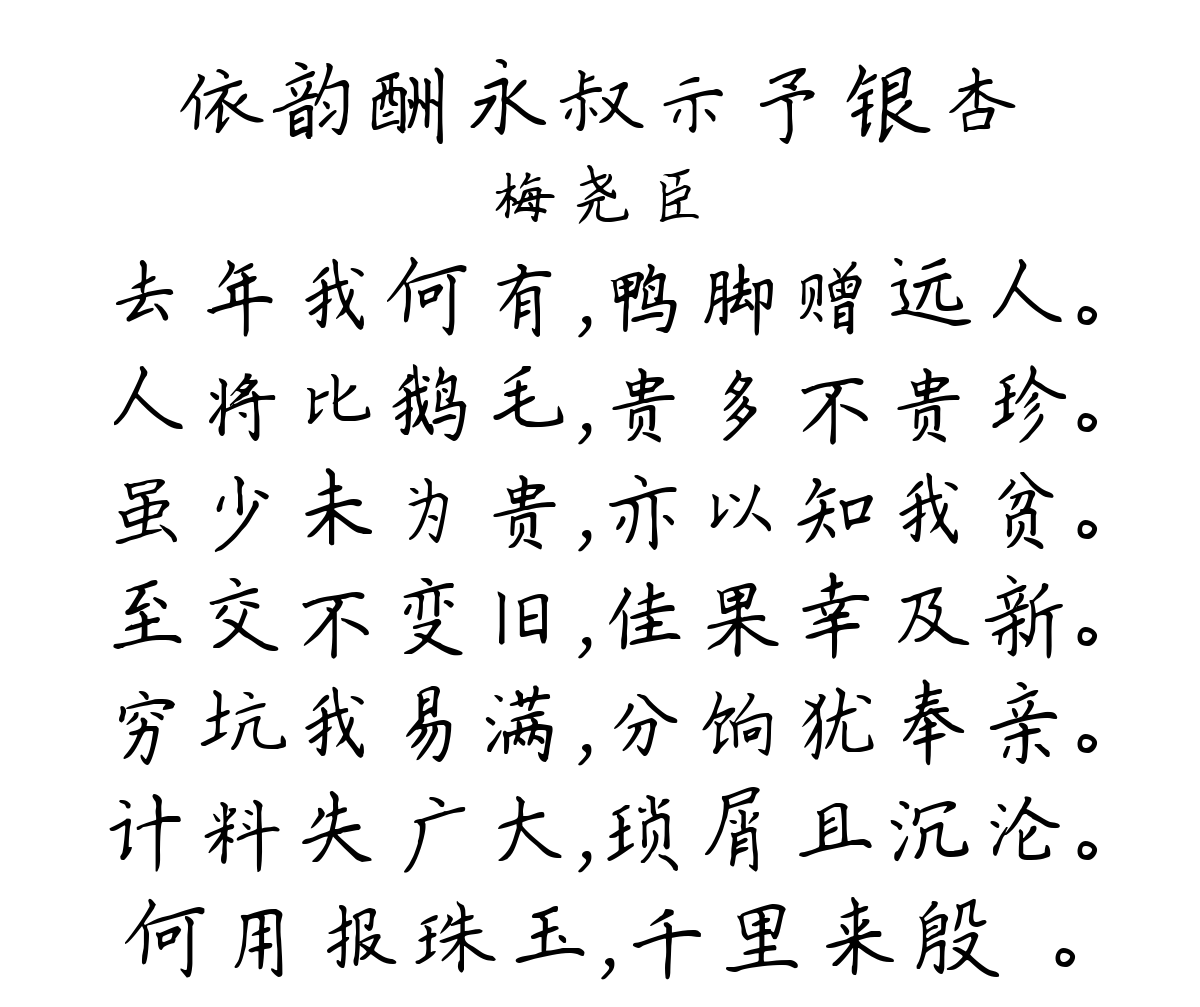 依韵酬永叔示予银杏
梅尧臣
去年我何有,鸭脚赠远人。
人将比鹅毛,贵多不贵珍。
虽少未为贵,亦以知我贫。
至交不变旧,佳果幸及新。
穷坑我易满,分饷犹奉亲。
计料失广大,琐屑且沉沦。
何用报珠玉,千里来殷 。